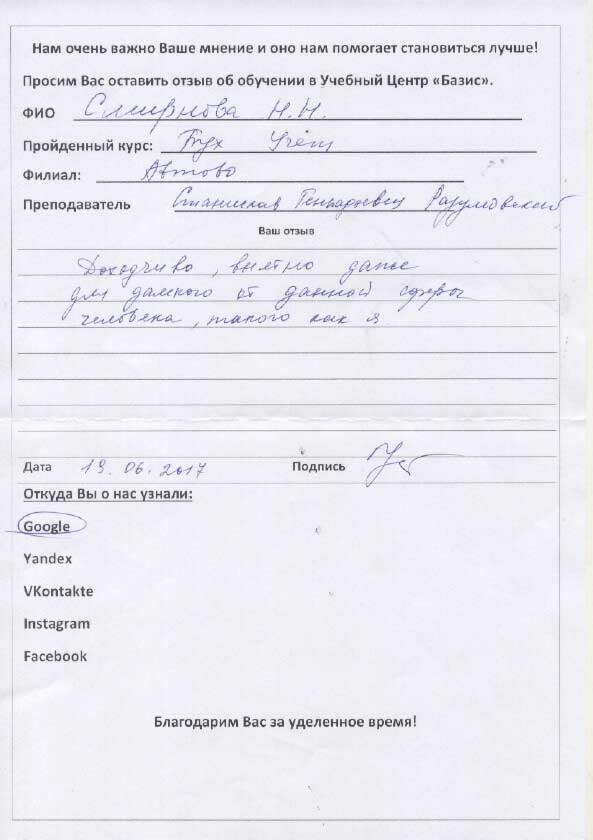 Нам очень важно Ваше мнение и оно нам помогает становиться лучше!
Просим Вас оставить отзыв об обучении в Учебный Центр «Базис».
ФИО Смирнова Н.Н.
Пройденный курс: Бух Учёт
Филиал: Автово
Преподаватель Станислав Геннадьевич Разумовский
Ваш отзыв
Доходчиво, внятно даже
для далекого от данной сферы
человека, такого как я
Дата 19.06.2017 Подпись
Откуда Вы о нас узнали:
Google
Yandex
VKontakte
Instagram
Facebook
Благодарим Вас за уделенное время!